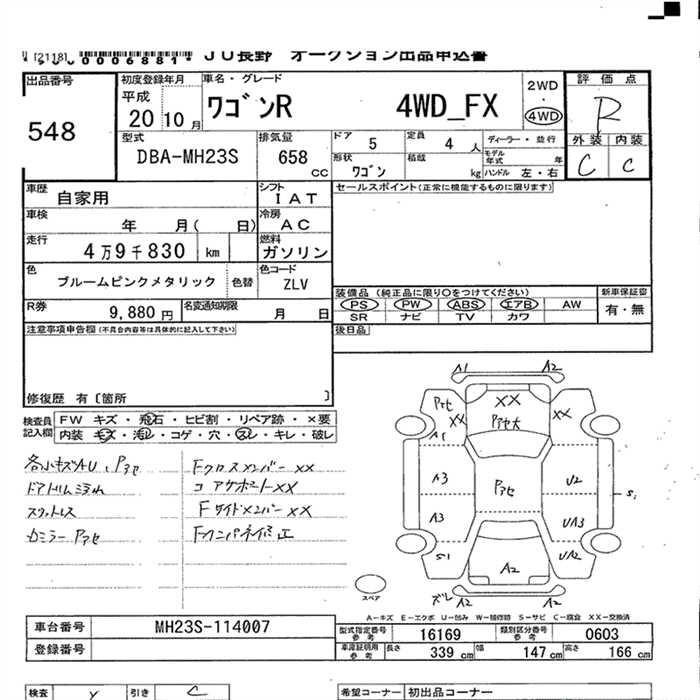 [2118] 0006881 JU長野 オークション出品申込書
出品番号 初度登録年月 車名・グレード 2WD 評価点
548 平成 20 10月 ワゴンR 4WD_FX ・ 4WD R
外装 内装
C C
型式 排気量 ドア 5 定員 4人 ディーラー・並行
DBA-MH23S 658 CC 形状 ワゴン 積載 kg モデル年式 年
ハンドル 左・右
車歴 自家用 シフト IAT セールスポイント(正常に機能するものに限ります)
車検 年 月( 日) 冷房 AC
走行 4万9千830 km 燃料 ガソリン
色 ブルームピンクメタリック 色替 色コード ZLV
装備品 (純正品に限り○をつけてください) 新車保証書
PS PW ABS エアB AW 有・無
SR ナビ TV カワ
R券 9,880円 名変通知期限 月 日
後日品
注意事項申告欄(不具合内容等は具体的に記入して下さい)
修復歴 有〔箇所 〕
検査員記入欄 FW キズ・飛石・ヒビ割・リペア跡・×要
内装 キズ・汚レ・コゲ・穴・スレ・キレ・破レ
各小キズAU、Pアセ
ドアトリム汚れ
スカットレス
Fクロスメンバー XX
コアサポートXX
FサイドメンバーXX
Fインパネ修正
A1 A2
Pアセ XX XX XX
A1 Pアセ大
A3 Pアセ U2
A3 UA3 S1
S1 A2 UA2
ズレ A2 A2
スペア
A-キズ E-エクボ U-凹み W-補修跡 S-サビ C-腐食 XX-交換済
車台番号 MH23S-114007
登録番号
型式指定番号 参考 16169 類別区分番号 参考 0603
車庫証明用 参考 長さ 339 cm 幅 147 cm 高さ 166 cm
検査 Y 引き C 希望コーナー 初出品コーナー